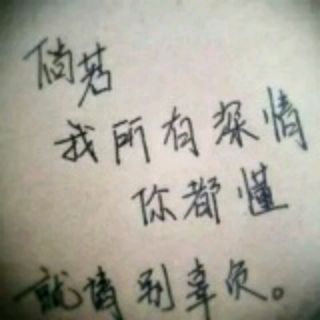 倘若
我所有深情
你都懂
就请别辜负。